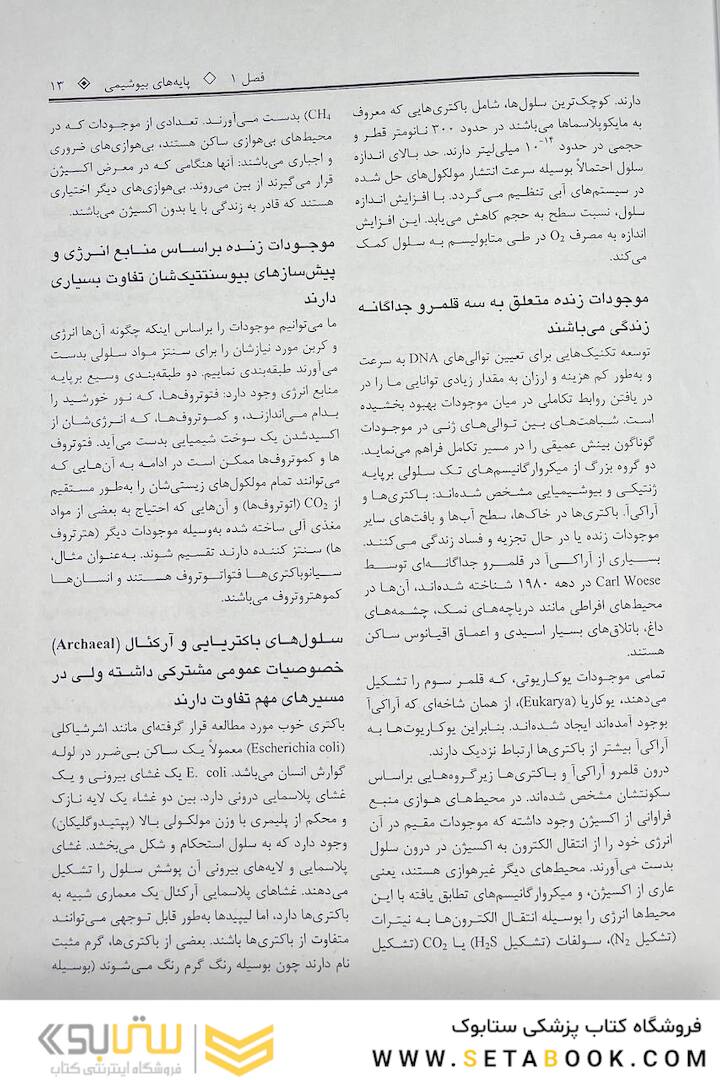 فصل ۱ ◇ پایه‌های بیوشیمی ◈ ۱۳
دارند. کوچک‌ترین سلول‌ها، شامل باکتری‌هایی که معروف
به مایکوپلاسماها می‌باشند در حدود ۳۰۰ نانومتر قطر و
حجمی در حدود ۱۰⁻¹⁴ میلی‌لیتر دارند. حد بالای اندازه
سلول احتمالاً بوسیله سرعت انتشار مولکول‌های حل شده
در سیستم‌های آبی تنظیم می‌گردد. با افزایش اندازه
سلول، نسبت سطح به حجم کاهش می‌یابد. این افزایش
اندازه به مصرف O₂ در طی متابولیسم به سلول کمک
می‌کند.
موجودات زنده متعلق به سه قلمرو جداگانه
زندگی می‌باشند
توسعه تکنیک‌هایی برای تعیین توالی‌های DNA به سرعت
و به‌طور کم هزینه و ارزان به مقدار زیادی توانایی ما را در
در یافتن روابط تکاملی در میان موجودات بهبود بخشیده
است. شباهت‌های بین توالی‌های ژنی در موجودات
گوناگون بینش عمیقی را در مسیر تکامل فراهم می‌نماید.
دو گروه بزرگ از میکروارگانیسم‌های تک سلولی برپایه
ژنتیکی و بیوشیمیایی مشخص شده‌اند: باکتری‌ها و
آراکی‌آ. باکتری‌ها در خاک‌ها، سطح آب‌ها و بافت‌های سایر
موجودات زنده یا در حال تجزیه و فساد زندگی می‌کنند.
بسیاری از آراکی‌آ در قلمرو جداگانه‌ای توسط
Carl Woese در دهه ۱۹۸۰ شناخته شده‌اند، آن‌ها در
محیط‌های افراطی مانند دریاچه‌های نمک، چشمه‌های
داغ، باتلاق‌های بسیار اسیدی و اعماق اقیانوس ساکن
هستند.
تمامی موجودات یوکاریوتی، که قلمر سوم را تشکیل
می‌دهند، یوکاریا (Eukarya)، از همان شاخه‌ای که آراکی‌آ
بوجود آمده‌اند ایجاد شده‌اند. بنابراین یوکاریوت‌ها به
آراکی‌آ بیشتر از باکتری‌ها ارتباط نزدیک دارند.
درون قلمرو آراکی‌آ و باکتری‌ها زیرگروه‌هایی براساس
سکونتشان مشخص شده‌اند. در محیط‌های هوازی منبع
فراوانی از اکسیژن وجود داشته که موجودات مقیم در آن
انرژی خود را از انتقال الکترون به اکسیژن در درون سلول
بدست می‌آورند. محیط‌های دیگر غیرهوازی هستند، یعنی
عاری از اکسیژن، و میکروارگانیسم‌های تطابق یافته با این
محیط‌ها انرژی را بوسیله انتقال الکترون‌ها به نیترات
(تشکیل N₂)، سولفات (تشکیل H₂S) یا CO₂ (تشکیل
CH₄) بدست می‌آورند. تعدادی از موجودات که در
محیط‌های بی‌هوازی ساکن هستند، بی‌هوازی‌های ضروری
و اجباری می‌باشند: آنها هنگامی که در معرض اکسیژن
قرار می‌گیرند از بین می‌روند. بی‌هوازی‌های دیگر اختیاری
هستند که قادر به زندگی با یا بدون اکسیژن می‌باشند.
موجودات زنده براساس منابع انرژی و
پیش‌سازهای بیوسنتتیک‌شان تفاوت بسیاری
دارند
ما می‌توانیم موجودات را براساس اینکه چگونه آن‌ها انرژی
و کربن مورد نیازشان را برای سنتز مواد سلولی بدست
می‌آورند طبقه‌بندی نماییم. دو طبقه‌بندی وسیع برپایه
منابع انرژی وجود دارد: فتوتروف‌ها، که نور خورشید را
بدام می‌اندازند، و کموتروف‌ها، که انرژی‌شان از
اکسیدشدن یک سوخت شیمیایی بدست می‌آید. فتوتروف
ها و کموتروف‌ها ممکن است در ادامه به آن‌هایی که
می‌توانند تمام مولکول‌های زیستی‌شان را به‌طور مستقیم
از CO₂ (اتوتروف‌ها) و آن‌هایی که احتیاج به بعضی از مواد
مغذی آلی ساخته شده به‌وسیله موجودات دیگر (هتروتروف
ها) سنتز کننده دارند تقسیم شوند. به‌عنوان مثال،
سیانوباکتری‌ها فتواتوتروف هستند و انسان‌ها
کموهتروتروف می‌باشند.
سلول‌های باکتریایی و آرکئال (Archaeal)
خصوصیات عمومی مشترکی داشته ولی در
مسیرهای مهم تفاوت دارند
باکتری خوب مورد مطالعه قرار گرفته‌ای مانند اشرشیاکلی
(Escherichia coli) معمولاً یک ساکن بی‌ضرر در لوله
گوارش انسان می‌باشد. E. coli یک غشای بیرونی و یک
غشای پلاسمایی درونی دارد. بین دو غشاء یک لایه نازک
و محکم از پلیمری با وزن مولکولی بالا (پپتیدوگلیکان)
وجود دارد که به سلول استحکام و شکل می‌بخشد. غشای
پلاسمایی و لایه‌های بیرونی آن پوشش سلول را تشکیل
می‌دهند. غشاهای پلاسمایی آرکئال یک معماری شبیه به
باکتری‌ها دارد، اما لیپیدها به‌طور قابل توجهی می‌توانند
متفاوت از باکتری‌ها باشند. بعضی از باکتری‌ها، گرم مثبت
نام دارند چون بوسیله رنگ گرم رنگ می‌شوند (بوسیله
فروشگاه کتاب پزشکی ستابوک
WWW.SETABOOK.COM
ستابوک
فروشگاه اینترنتی کتاب